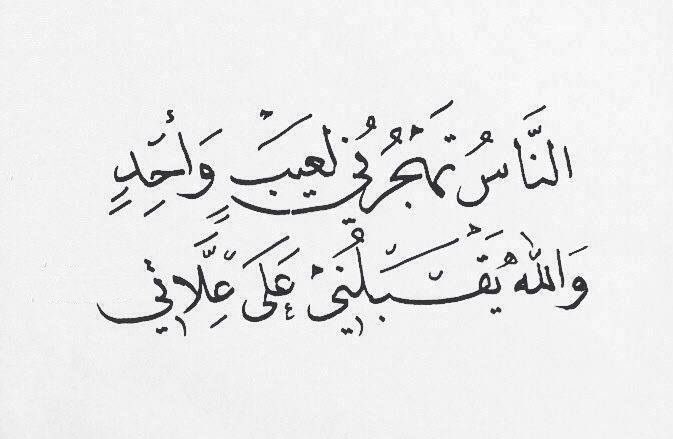 النَّاسُ تَهْجُرُنِي لِعَيْبٍ وَاحِدٍ
وَاللهُ يَقْبَلُنِي عَلَى عِلَّاتِي